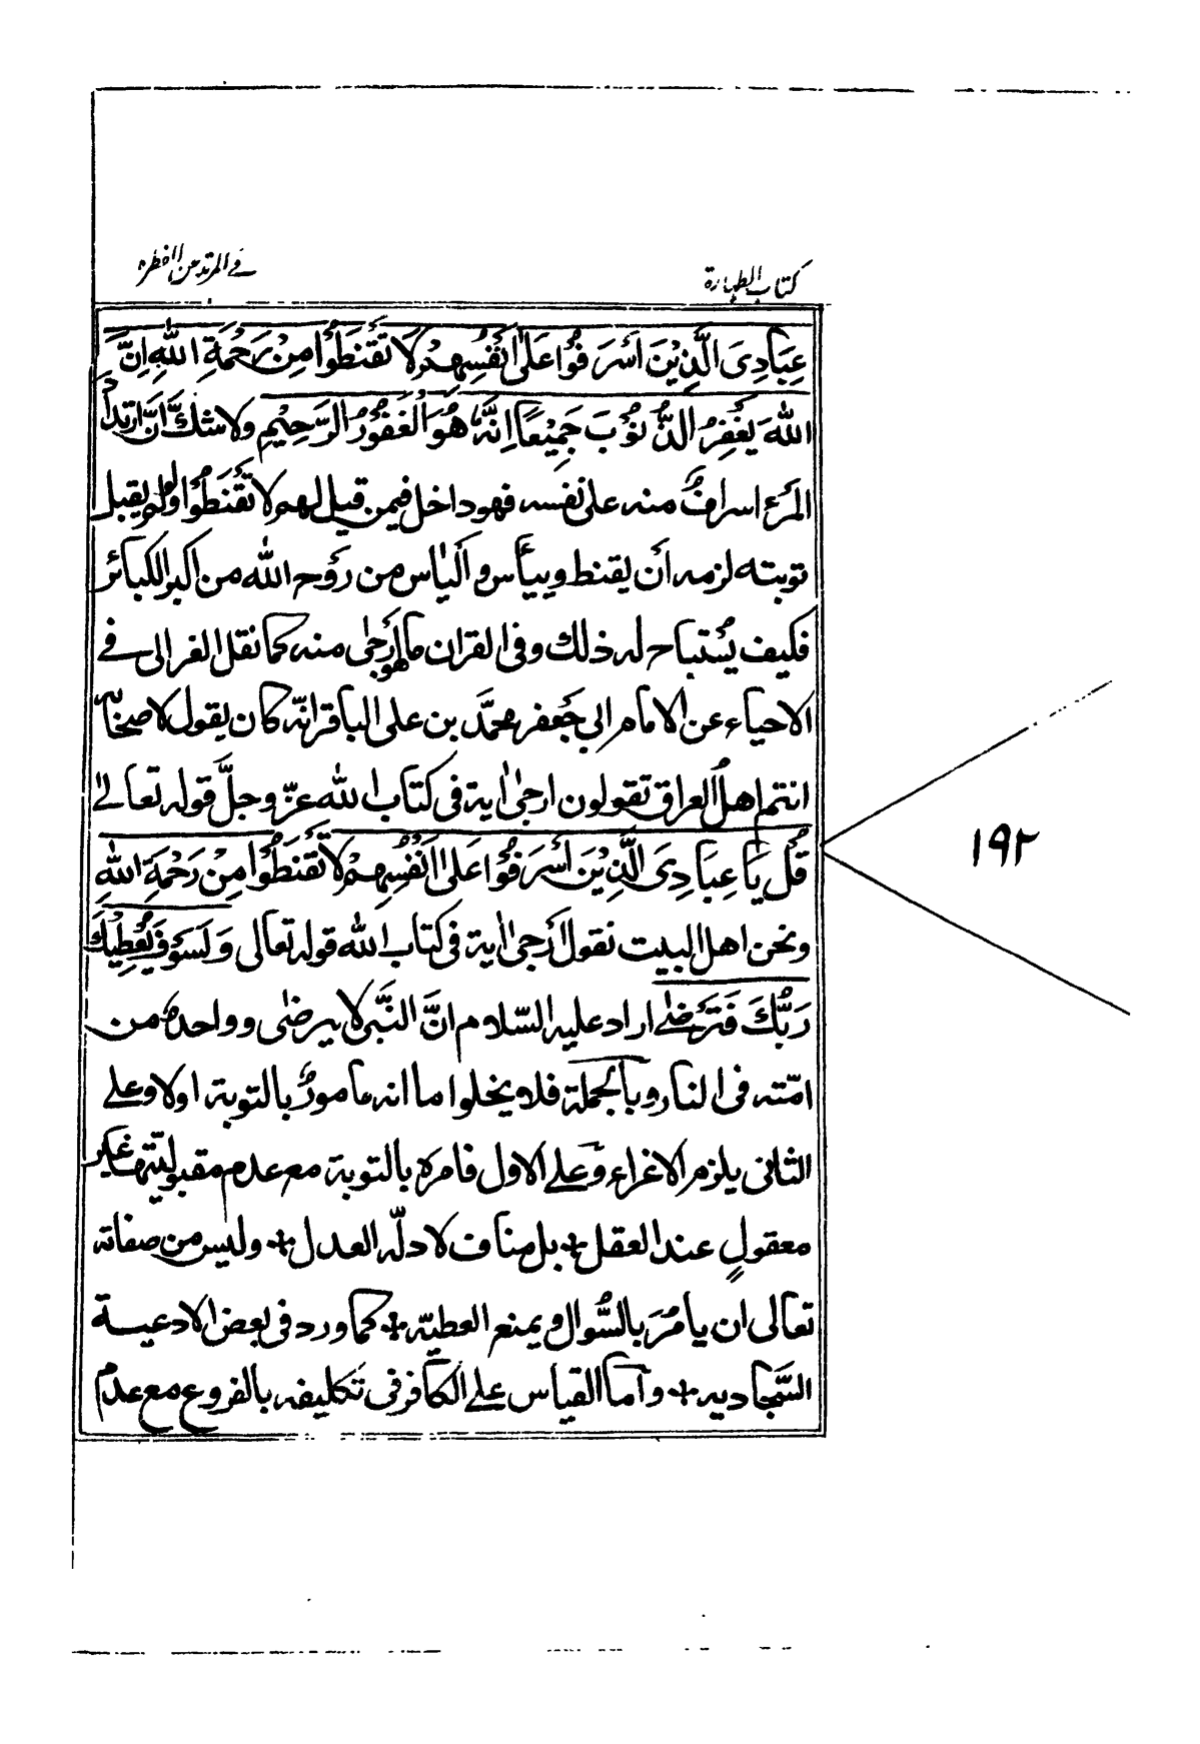 كتاب الطهارة
في المرتد عن الفطره
عِبَادِىَ الَّذِيْنَ اَسْرَفُوْا عَلٰى اَنْفُسِهِمْ لَا تَقْنَطُوْا مِنْ رَحْمَةِ اللّٰهِ اِنَّ
اللّٰهَ يَغْفِرُ الذُّنُوْبَ جَمِيْعًا اِنَّهٗ هُوَ الْغَفُوْرُ الرَّحِيْمِ ولا شكَّ اَنَّ ارتدادَ
المرءِ اسرافٌ منه على نفسه فهو داخل فيمن قيل لهم لا تَقْنَطُوْا ولو لم يقبل
توبته لزمه أن يقنط وييأس واليأس من رَوْح اللّٰه من اكبر الكبائر
فكيف يُستباح له ذلك وفى القران ما هو أَرجٰى منه كما نقل الغزالى فے
الاحياء عن الامام ابي جَعفر محمَّد بن على الباقر انّه كان يقول لاصحابه
انتم اهل العراق تقولون ارجٰى اٰية فى كتاب اللّٰه عزّ وجلَّ قوله تعالےٰ
قُل يَا عِبَادِىَ الَّذِيْنَ اَسْرَفُوْا عَلٰى اَنْفُسِهِمْ لَا تَقْنَطُوْا مِنْ رَحْمَةِ اللّٰهِ
ونحن اهل البيت نقول أرجٰى اٰية فى كتاب اللّٰه قوله تعالى وَلَسَوْفَ يُعْطِيْكَ
رَبُّكَ فَتَرْضٰے اراد عليه السّلام انَّ النَّبى لا يرضٰى وواحدٌ من
امّته فى النار وبالجملة فلا يخلوا ما انه مامورٌ بالتوبة اولا وعلے
الثانى يلزم الاغراء وَعلے الاول فامره بالتوبة مع عدم مقبوليّتها غير
معقولٍ عند العقل + بل مناف لادلّة العدل + وليس من صفاته
تعالى ان يامُرَ بالسُّوال ويمنع العطيّه + كما ورد فى بعض الادعيـة
السَّجاديه + وأما القياس علے الكافر فى تكليفه بالفروع مع عدم
١٩٢